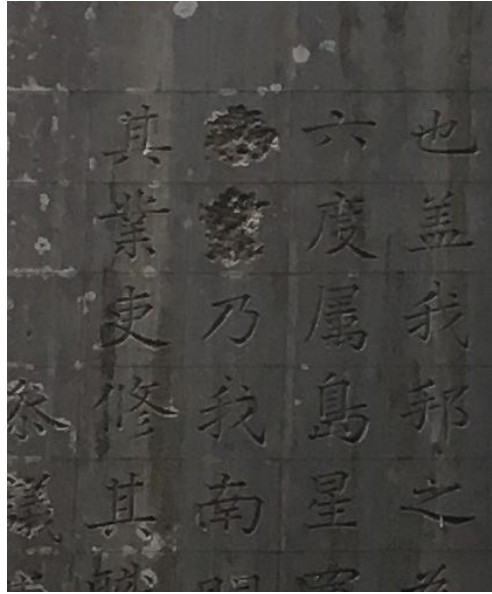 也盖我邦之
六度属島星
乃我南
其業吏修其
叅議